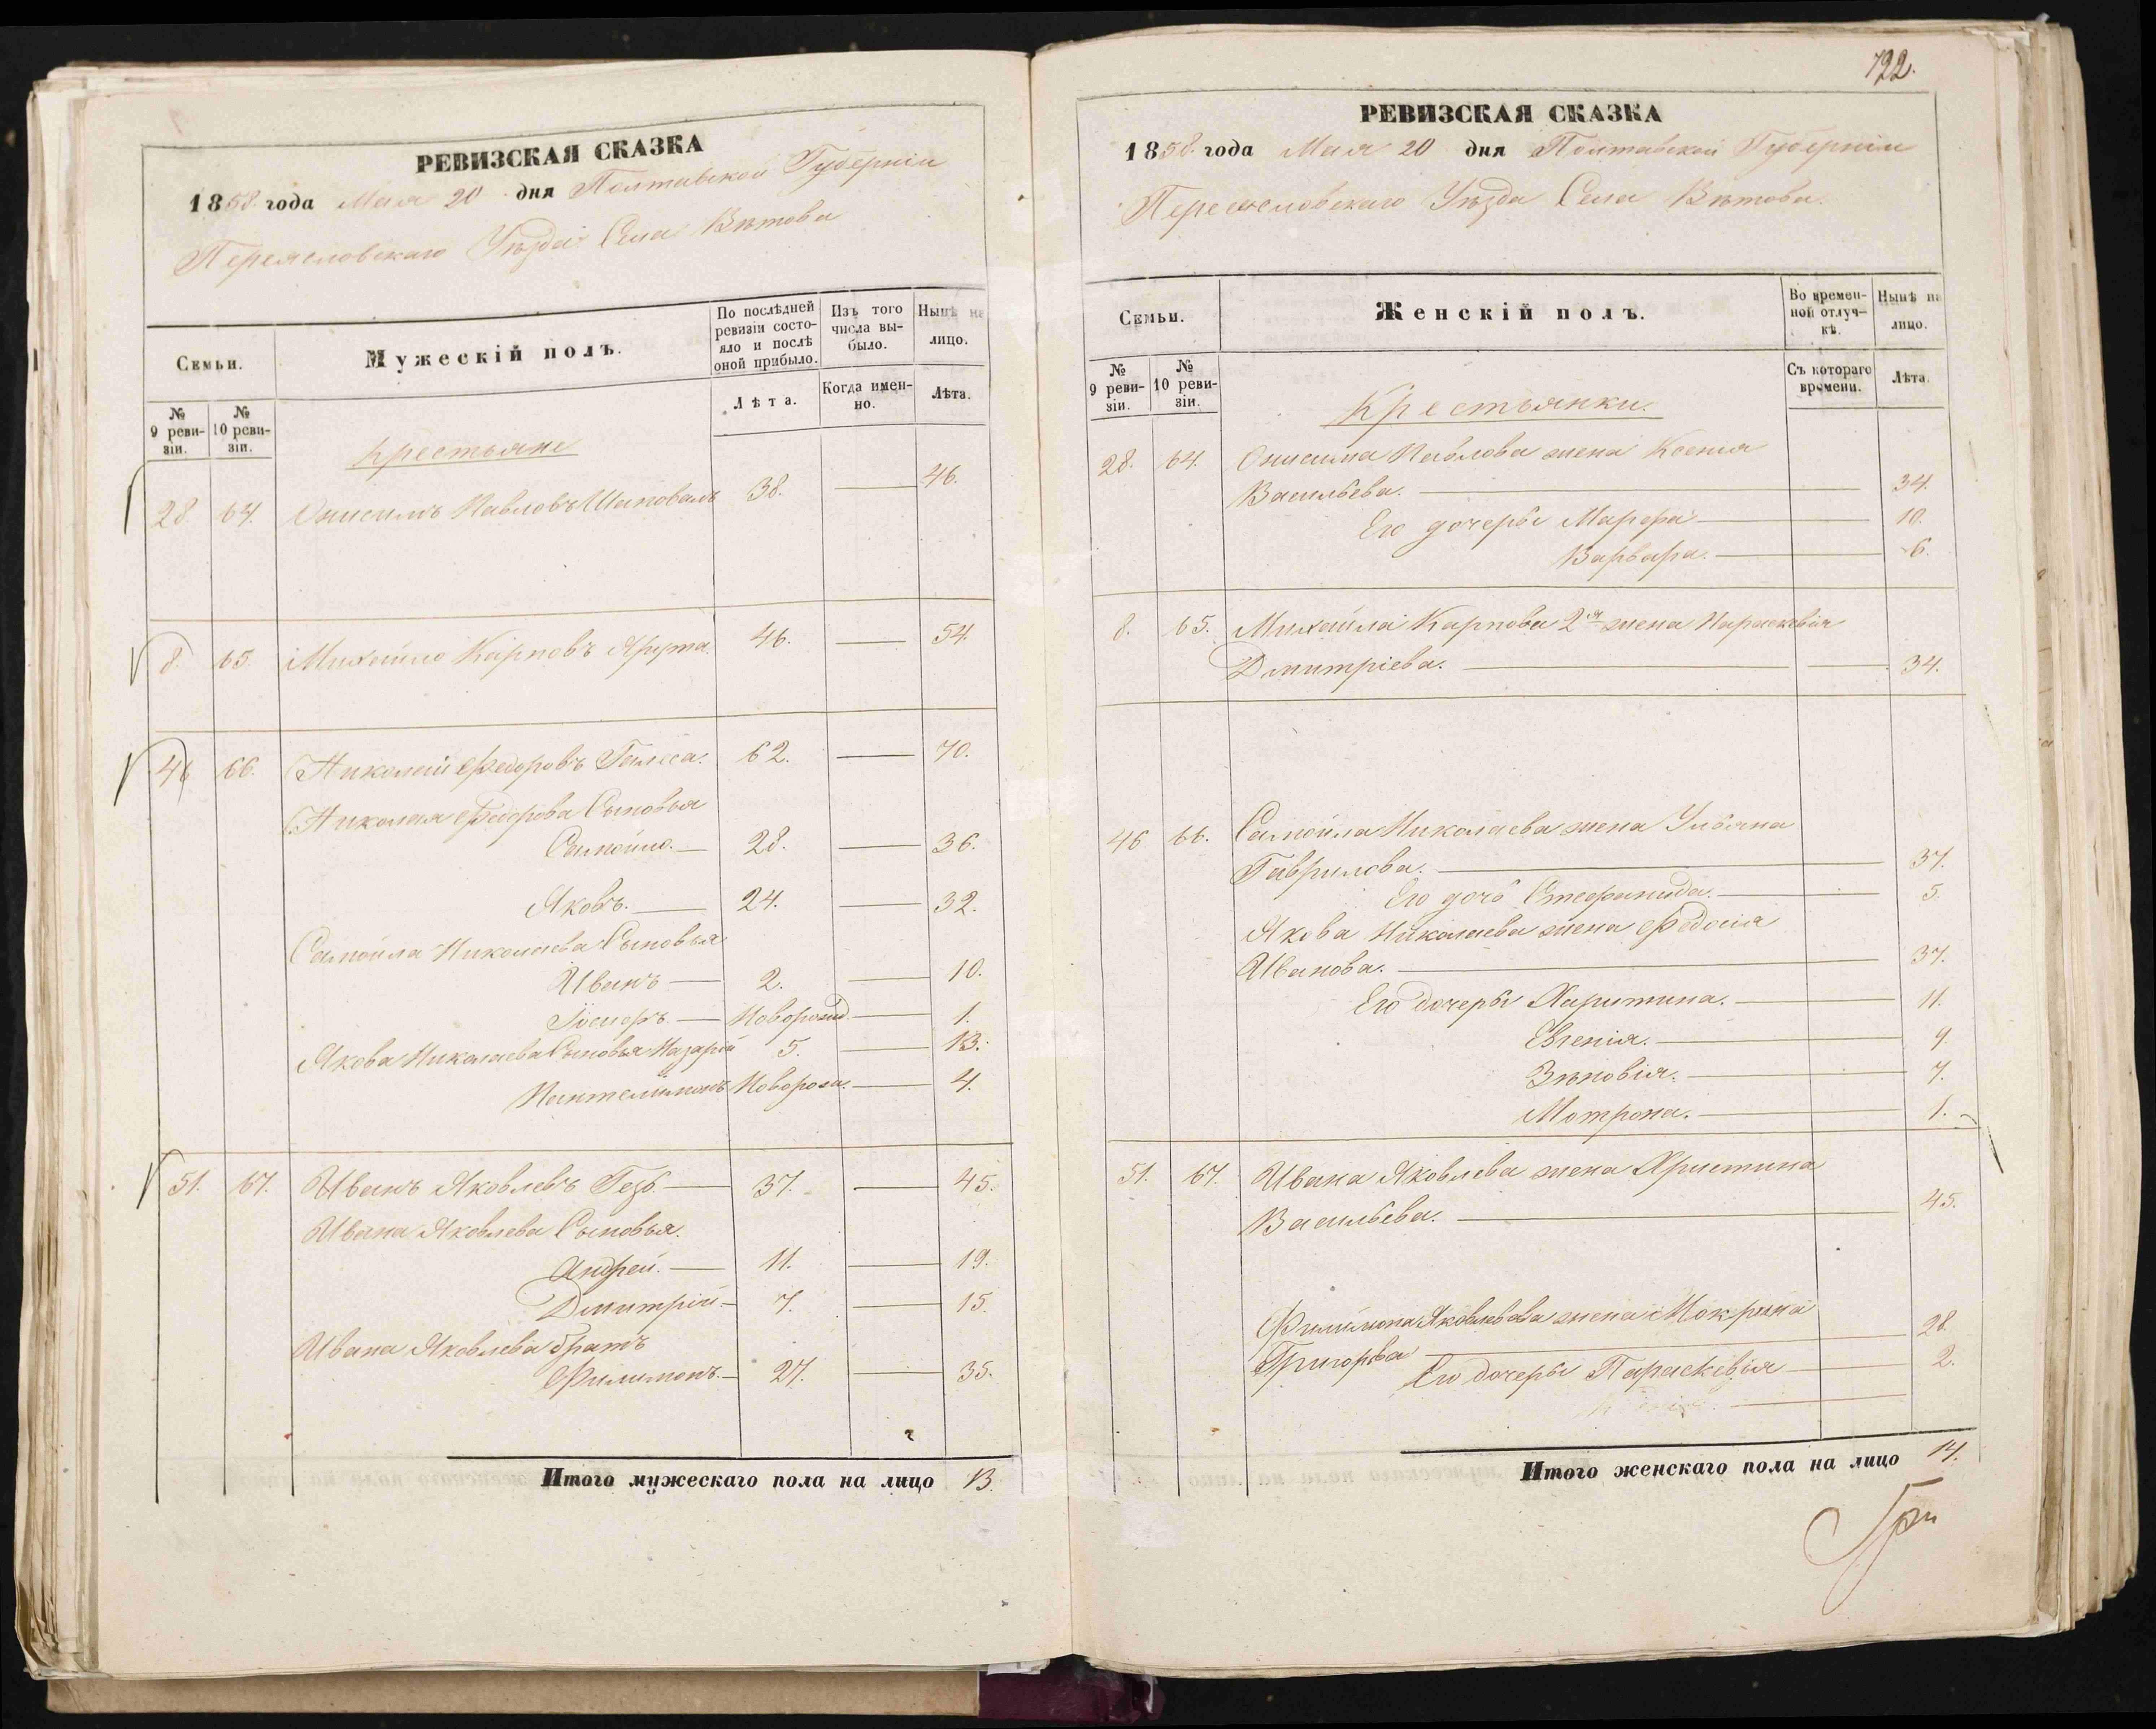 РЕВИЗСКАЯ СКАЗКА
1858 года Мая 20 дня Полтавской Губерніи
Переясловскаго Уѣзда Села Вѣтова
Семьи.
Мужескій полъ.
По послѣдней ревизіи состояло и послѣ оной прибыло.
Изъ того числа выбыло.
Нынѣ на лицо.
№ 9 ревизіи.
№ 10 ревизіи.
Лѣта.
Когда именно.
Лѣта.
Крестьяне
28 64. Онисимъ Павловъ Шаповалъ 38. — 46.
8. 65. Михайло Карповъ Ярута. 46. — 54.
46 66. Николай Федоровъ 62. — 70.
Николая Федорова Сыновья
Самойло. — 28. — 36.
Яковъ. — 24. — 32.
Самойла Николаева Сыновья
Иванъ — 2. — 10.
Іосифъ — Новорожд. — 1.
Якова Николаева Сыновья Назарій 5. — 13.
Пантелимонъ Новорож. — 4.
51. 67. Иванъ Яковлевъ Гезь — 37. — 45.
Ивана Яковлева Сыновья.
Андрей. — 11. — 19.
Дмитрій. — 7. — 15.
Ивана Яковлева братъ
Филимонъ. — 27. — 35.
Итого мужескаго пола на лицо 13.
722.
РЕВИЗСКАЯ СКАЗКА
1858 года Мая 20 дня Полтавской Губерніи
Переясловскаго Уѣзда Села Вѣтова.
Семьи.
Женскій полъ.
Во временной отлучкѣ.
Нынѣ на лицо.
№ 9 ревизіи.
№ 10 ревизіи.
Съ котораго времени.
Лѣта.
Крестьянки.
28. 64. Онисима Павлова жена Ксенія
Васильева. — 34.
Его дочеры Марфа — 10.
Варвара. — 6.
8. 65. Михайла Карпова 2я жена Параскевія
Дмитріева. — 34.
46 66. Самойла Николаева жена Ульяна
Гаврилова. — 37.
Его дочь Стефанида. — 5.
Якова Николаева жена Федосія
Иванова. — 37.
Его дочеры Харитина. — 11.
Евгенія. — 9
Зѣновія. — 7.
Мотрона. — 1.
51. 67. Ивана Яковлева жена Христина
Васильева. — 45.
Филимона Яковлева жена Мокрина
Григорьева — 28.
Его дочеры Параскевія — 2.
Итого женскаго пола на лицо 14.